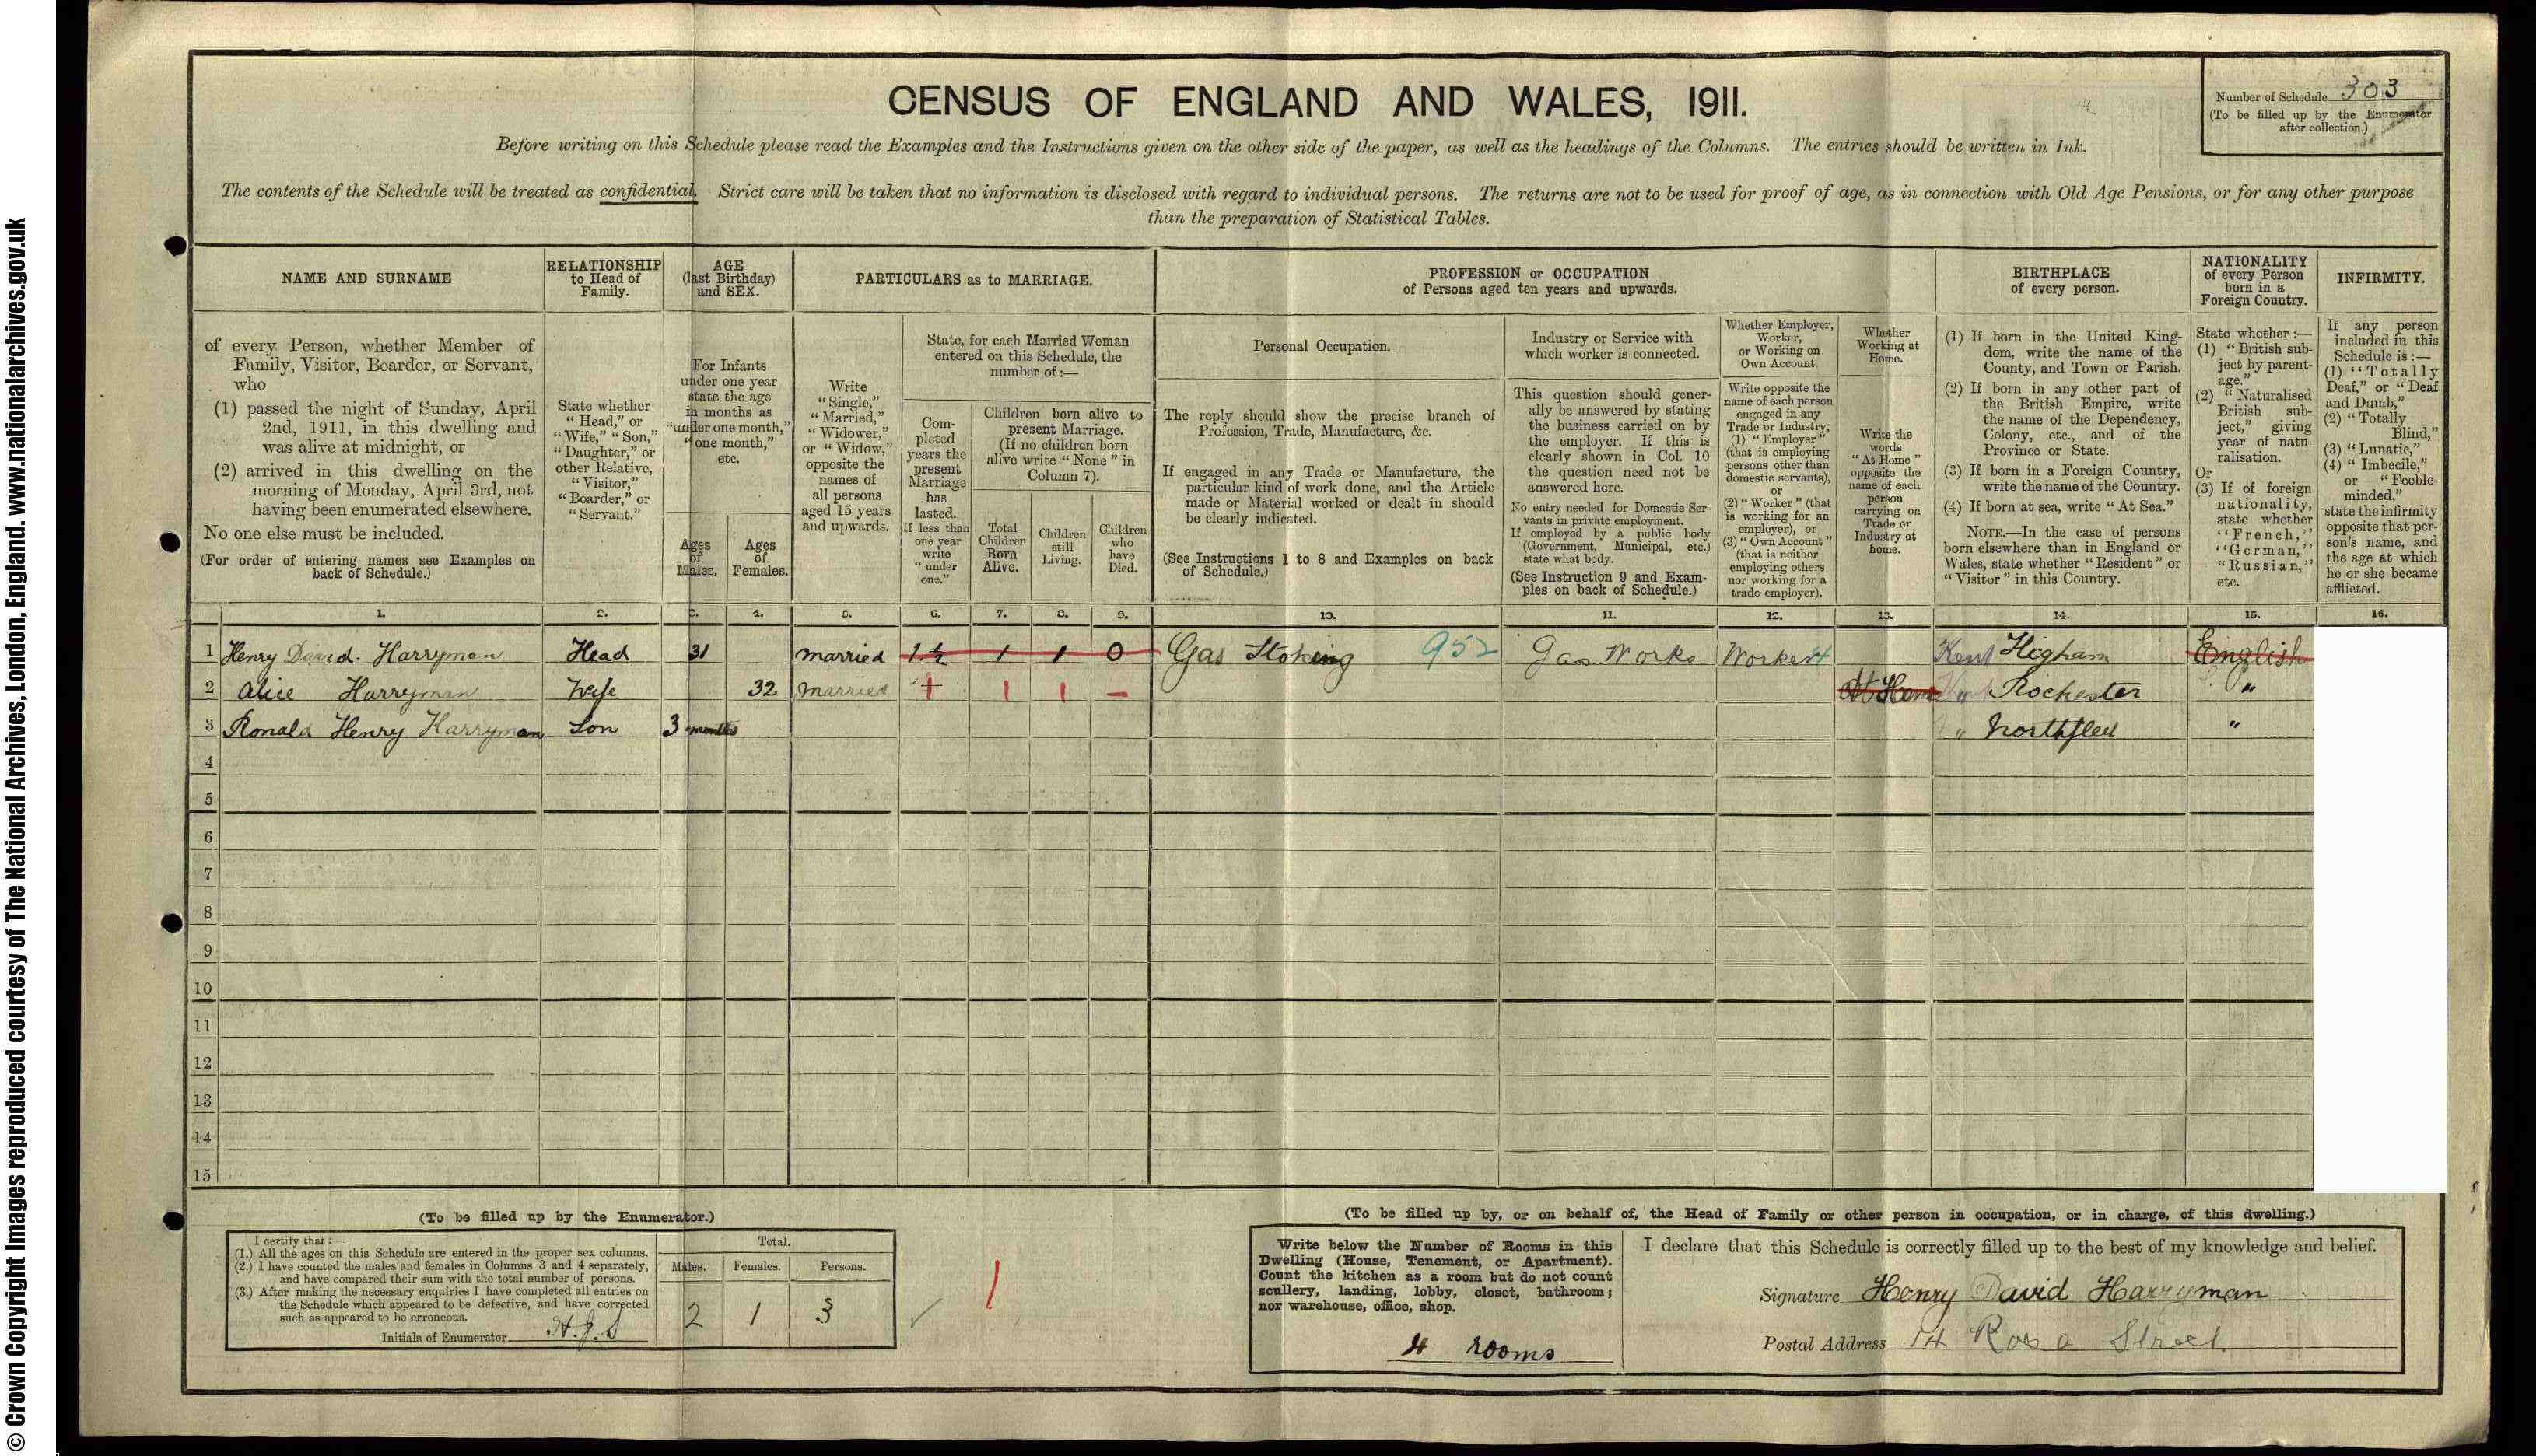 © Crown Copyright Images reproduced courtesy of The National Archives, London, England. www.nationalarchives.gov.uk
CENSUS OF ENGLAND AND WALES, 1911.
Number of Schedule 303
(To be filled up by the Enumerator
after collection.)
Before writing on this Schedule please read the Examples and the Instructions given on the other side of the paper, as well as the headings of the Columns. The entries should be written in Ink.
The contents of the Schedule will be treated as confidential. Strict care will be taken that no information is disclosed with regard to individual persons. The returns are not to be used for proof of age, as in connection with Old Age Pensions, or for any other purpose
than the preparation of Statistical Tables.
NAME AND SURNAME
of every Person, whether Member of
Family, Visitor, Boarder, or Servant,
who
(1) passed the night of Sunday, April
2nd, 1911, in this dwelling and
was alive at midnight, or
(2) arrived in this dwelling on the
morning of Monday, April 3rd, not
having been enumerated elsewhere.
No one else must be included.
(For order of entering names see Examples on
back of Schedule.)
RELATIONSHIP
to Head of
Family.
State whether
"Head," or
"Wife," "Son,"
"Daughter," or
other Relative,
"Visitor,"
"Boarder," or
"Servant."
AGE
(last Birthday)
and SEX.
For Infants
under one year
state the age
in months as
"under one month,"
"one month,"
etc.
Ages
of
Males.
Ages
of
Females.
PARTICULARS as to MARRIAGE.
Write
"Single,"
"Married,"
"Widower,"
or "Widow,"
opposite the
names of
all persons
aged 15 years
and upwards.
State, for each Married Woman
entered on this Schedule, the
number of:—
Com-
pleted
years the
present
Marriage
has
lasted.
If less than
one year
write
"under
one."
Children born alive to
present Marriage.
(If no children born
alive write "None" in
Column 7).
Total
Children
Born
Alive.
Children
still
Living.
Children
who
have
Died.
PROFESSION or OCCUPATION
of Persons aged ten years and upwards.
Personal Occupation.
The reply should show the precise branch of
Profession, Trade, Manufacture, &c.
If engaged in any Trade or Manufacture, the
particular kind of work done, and the Article
made or Material worked or dealt in should
be clearly indicated.
(See Instructions 1 to 8 and Examples on back
of Schedule.)
Industry or Service with
which worker is connected.
This question should gener-
ally be answered by stating
the business carried on by
the employer. If this is
clearly shown in Col. 10
the question need not be
answered here.
No entry needed for Domestic Ser-
vants in private employment.
If employed by a public body
(Government, Municipal, etc.)
state what body.
(See Instruction 9 and Exam-
ples on back of Schedule.)
Whether Employer,
Worker,
or Working on
Own Account.
Write opposite the
name of each person
engaged in any
Trade or Industry,
(1) "Employer"
(that is employing
persons other than
domestic servants),
or
(2) "Worker" (that
is working for an
employer), or
(3) "Own Account"
(that is neither
employing others
nor working for a
trade employer).
Whether
Working at
Home.
Write the
words
"At Home"
opposite the
name of each
person
carrying on
Trade or
Industry at
home.
BIRTHPLACE
of every person.
(1) If born in the United King-
dom, write the name of the
County, and Town or Parish.
(2) If born in any other part of
the British Empire, write
the name of the Dependency,
Colony, etc., and of the
Province or State.
(3) If born in a Foreign Country,
write the name of the Country.
(4) If born at sea, write "At Sea."
NOTE.—In the case of persons
born elsewhere than in England or
Wales, state whether "Resident" or
"Visitor" in this Country.
NATIONALITY
of every Person
born in a
Foreign Country.
State whether :—
(1) "British sub-
ject by parent-
age."
(2) "Naturalised
British sub-
ject," giving
year of natu-
ralisation.
Or
(3) If of foreign
nationality,
state whether
"French,"
"German,"
"Russian,"
etc.
INFIRMITY.
If any person
included in this
Schedule is :—
(1) "Totally
Deaf," or "Deaf
and Dumb,"
(2) "Totally
Blind,"
(3) "Lunatic,"
(4) "Imbecile,"
or "Feeble-
minded,"
state the infirmity
opposite that per-
son's name, and
the age at which
he or she became
afflicted.
1. 2. 3. 4. 5. 6. 7. 8. 9. 10. 11. 12. 13. 14. 15. 16.
1 Henry David. Harryman Head 31 married 1½ 1 1 0 Gas Stoking 952 Gas Works Worker 4 Kent Higham English
2 Alice Harryman Wife 32 married 1 1 1 — At Home " Rochester "
3 Ronald Henry Harryman Son 3 months " Northfleet "
4
5
6
7
8
9
10
11
12
13
14
15
(To be filled up by the Enumerator.)
I certify that :—
(1.) All the ages on this Schedule are entered in the proper sex columns.
(2.) I have counted the males and females in Columns 3 and 4 separately,
and have compared their sum with the total number of persons.
(3.) After making the necessary enquiries I have completed all entries on
the Schedule which appeared to be defective, and have corrected
such as appeared to be erroneous.
Initials of Enumerator H.J.S
Total.
Males. Females. Persons.
2 1 3
1
(To be filled up by, or on behalf of, the Head of Family or other person in occupation, or in charge, of this dwelling.)
Write below the Number of Rooms in this
Dwelling (House, Tenement, or Apartment).
Count the kitchen as a room but do not count
scullery, landing, lobby, closet, bathroom;
nor warehouse, office, shop.
4 rooms
I declare that this Schedule is correctly filled up to the best of my knowledge and belief.
Signature Henry David Harryman
Postal Address 14 Rose Street